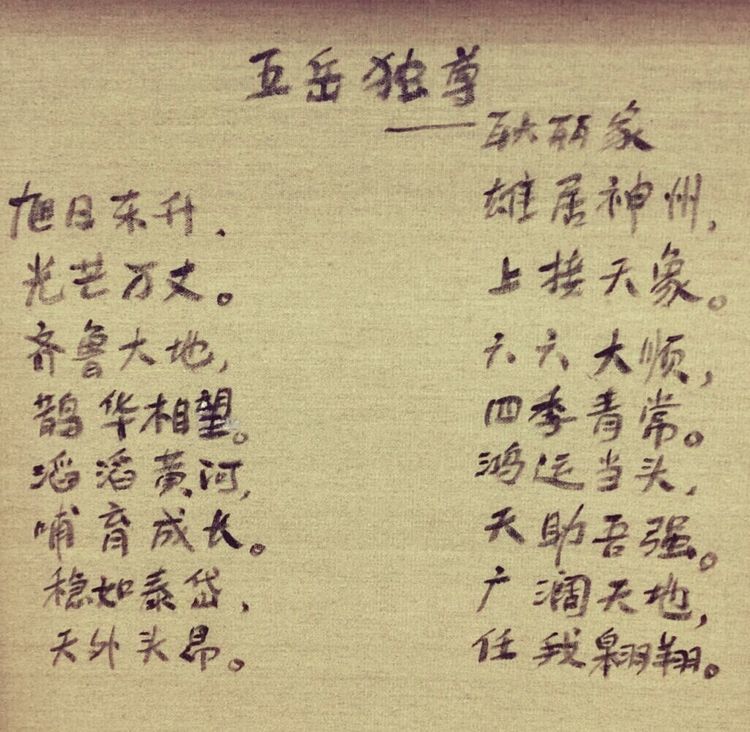 五岳独尊
——耿丽家
旭日东升，
光芒万丈。
齐鲁大地，
鹊华相望。
滔滔黄河，
哺育成长。
稳如泰岱，
天外头昂。
雄居神州，
上接天象。
六六大顺，
四季青常。
鸿运当头，
天助吾强。
广澜天地，
任我翱翔。